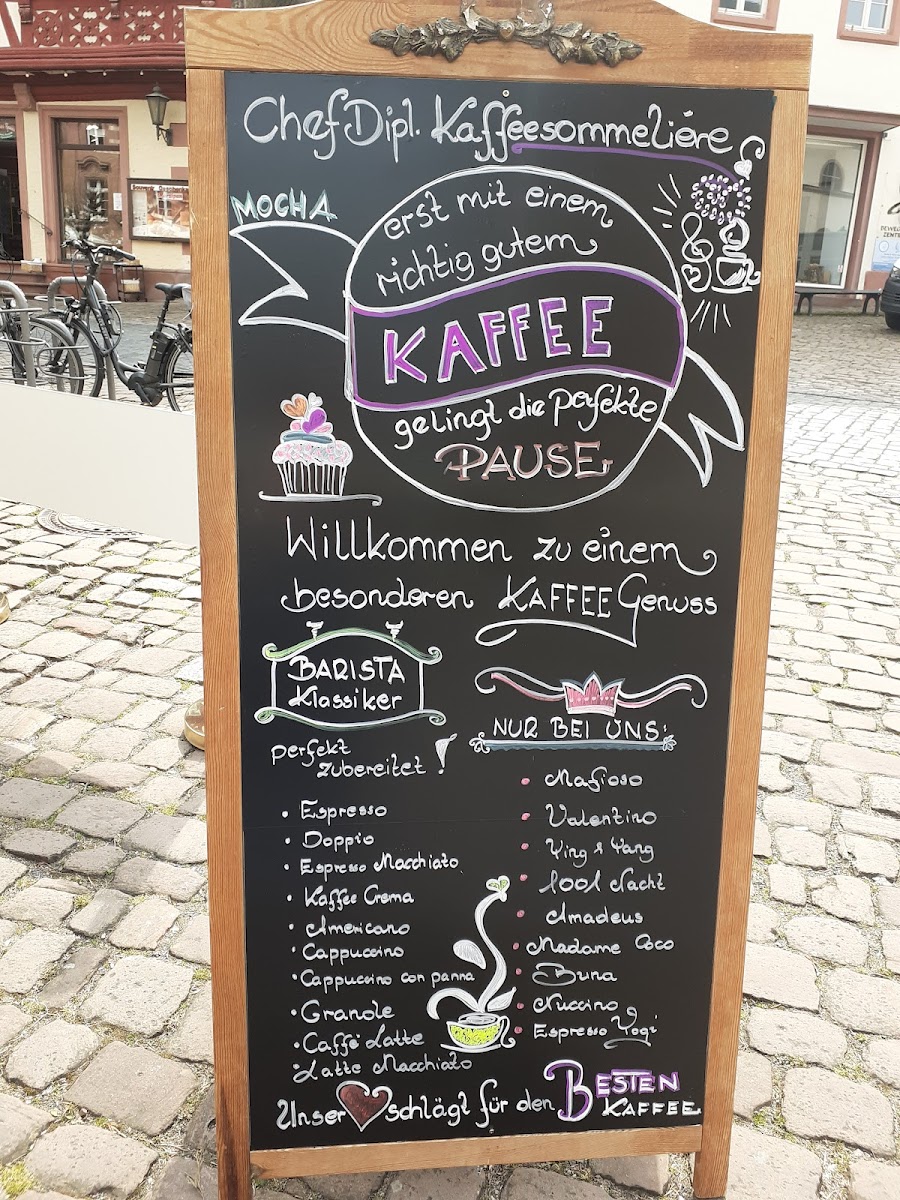 Chef Dipl. Kaffeesommeliére
MOCHA
erst mit einem
richtig gutem
KAFFEE
gelingt die perfekte
PAUSE
Willkommen zu einem
besonderen KAFFEE Genuss
BARISTA
Klassiker
perfekt
zubereitet!
• Espresso
• Doppio
• Espresso Macchiato
• Kaffee Crema
• Americano
• Cappuccino
• Cappuccino con panna
• Granole
• Caffé Latte
• Latte Macchiato
NUR BEI UNS:
• Mafioso
• Valentino
• Ying & Yang
• 1001 Nacht
• Amadeus
• Madame Coco
• Buna
• Nuccino
• Espresso Yogi
Unser schlägt für den BESTEN
KAFFEE